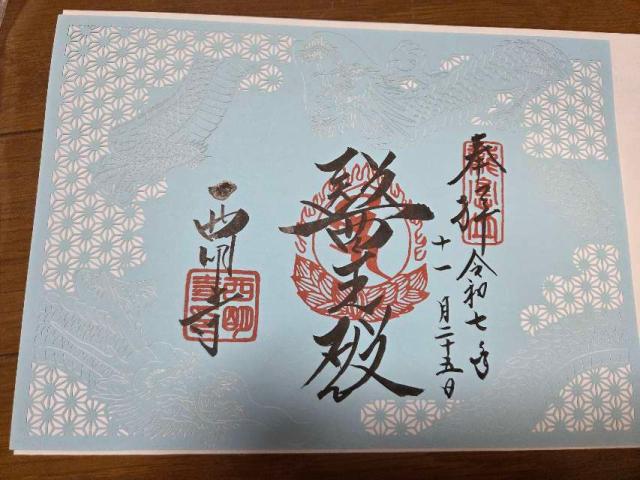 奉拝
令和七年
十一月二十五日
醫王殿
西明寺
西明寺印